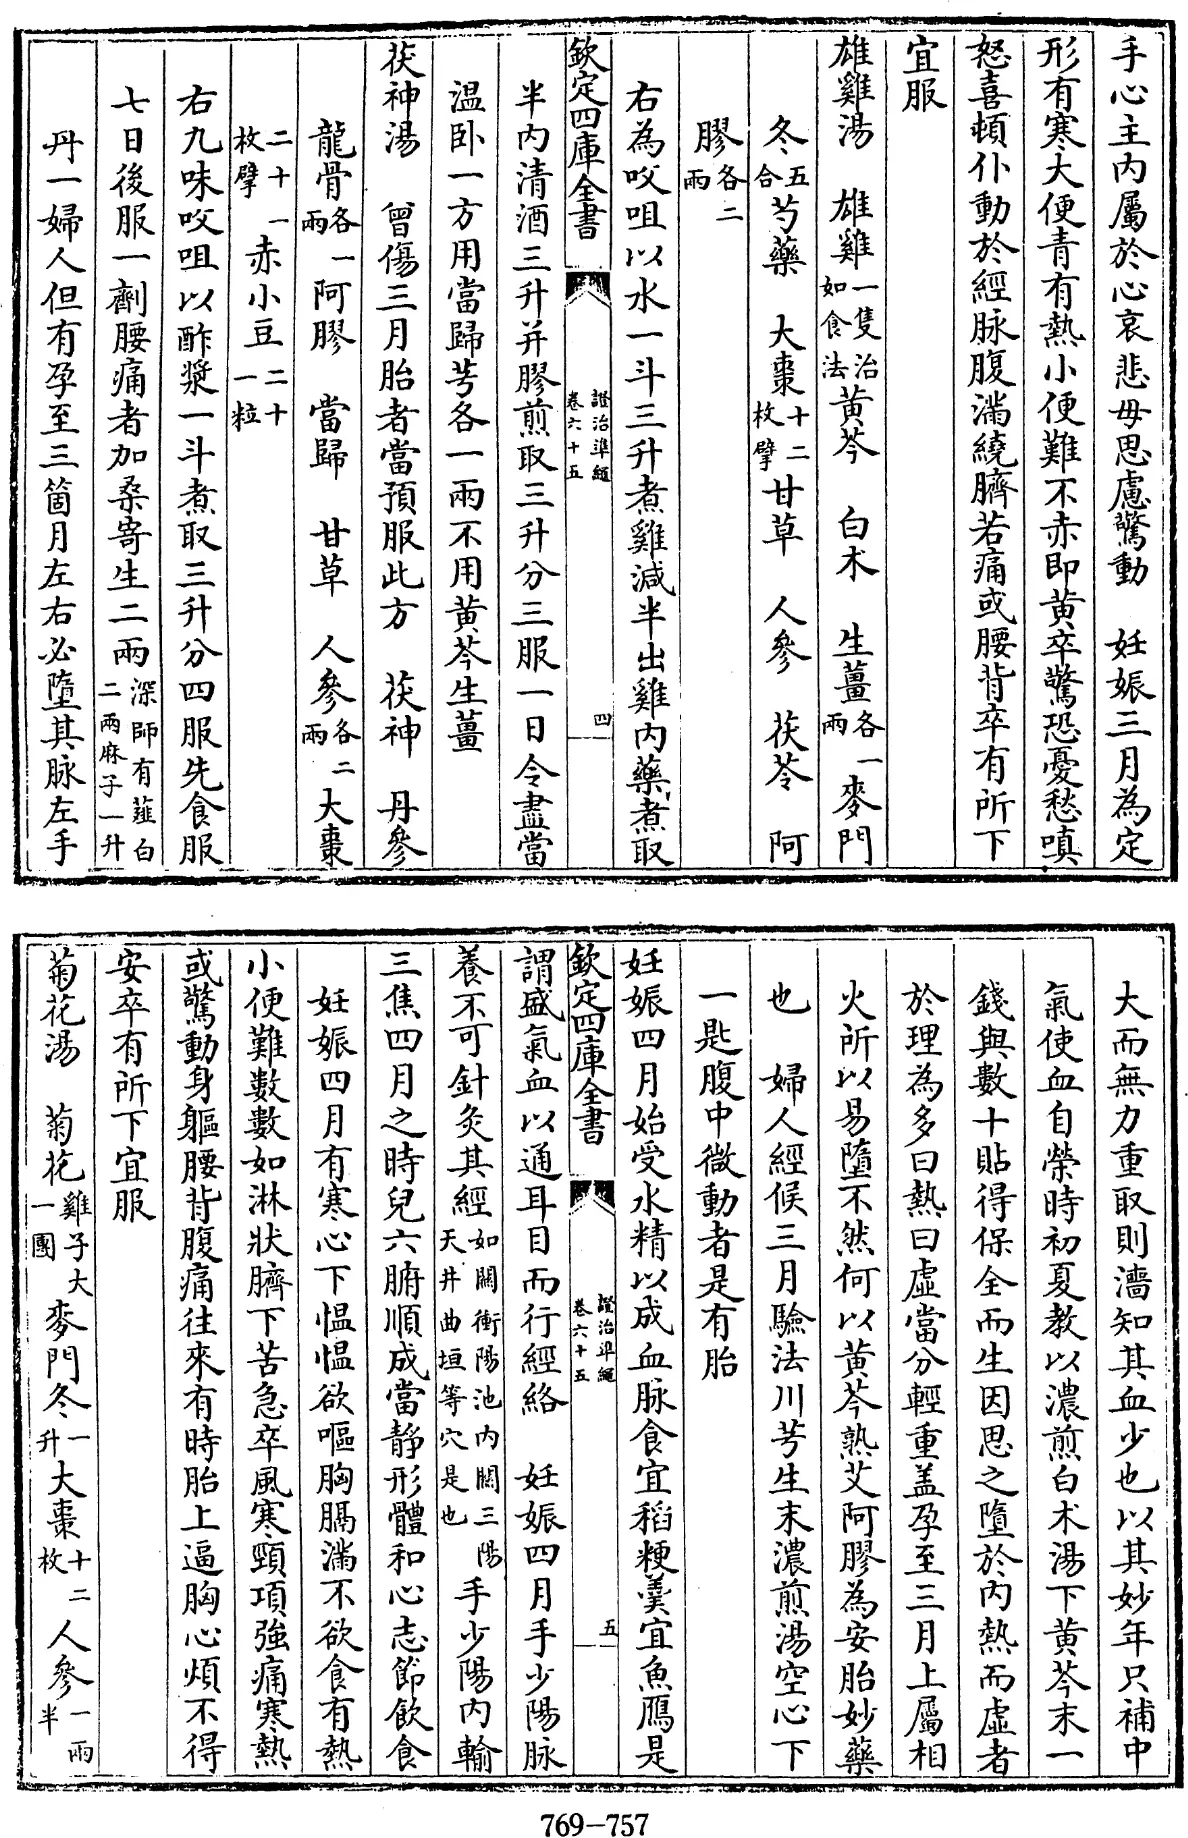 手心主内屬於心哀悲毋思慮驚動　妊娠三月為定
形有寒大便青有熱小便難不赤即黄卒驚恐憂愁嗔
怒喜頓仆動於經脉腹滿繞臍若痛或腰背卒有所下
宜服
雄雞湯　雄雞一隻治如食法黄芩　白术　生薑各一兩麥門
冬五合芍藥　大棗十二枚擘甘草　人參　茯苓　阿
膠各二兩
右為㕮咀以水一斗三升煮雞減半出雞内藥煮取
欽定四庫全書　證治凖繩卷六十五　四
半内清酒三升并膠煎取三升分三服一日令盡當
温卧一方用當歸芎各一兩不用黄芩生薑
茯神湯　曾傷三月胎者當預服此方　茯神　丹參
龍骨各一兩阿膠　當歸　甘草　人參各二兩大棗
二十一枚擘赤小豆二十一粒
右九味㕮咀以酢漿一斗煮取三升分四服先食服
七日後服一劑腰痛者加桑寄生二兩深師有薤白二兩麻子一升
丹一婦人但有孕至三箇月左右必墮其脉左手
大而無力重取則濇知其血少也以其妙年只補中
氣使血自榮時初夏教以濃煎白术湯下黄芩末一
錢與數十貼得保全而生因思之墮於内熱而虚者
於理為多曰熱曰虚當分輕重盖孕至三月上屬相
火所以易墮不然何以黄芩熟艾阿膠為安胎妙藥
也　婦人經候三月驗法川芎生末濃煎湯空心下
一匙腹中微動者是有胎
妊娠四月始受水精以成血脉食宜稻粳羹宜魚鴈是
欽定四庫全書　證治凖繩卷六十五　五
謂盛氣血以通耳目而行經絡　妊娠四月手少陽脉
養不可針灸其經如關衝陽池内關三陽天井曲垣等穴是也手少陽内輸
三焦四月之時兒六腑順成當靜形體和心志節飲食
妊娠四月有寒心下愠愠欲嘔胸膈滿不欲食有熱
小便難數數如淋狀臍下苦急卒風寒頸項強痛寒熱
或驚動身軀腰背腹痛往來有時胎上逼胸心煩不得
安卒有所下宜服
菊花湯　菊花雞子大一團麥門冬一升大棗十二枚人參一兩半
769–757